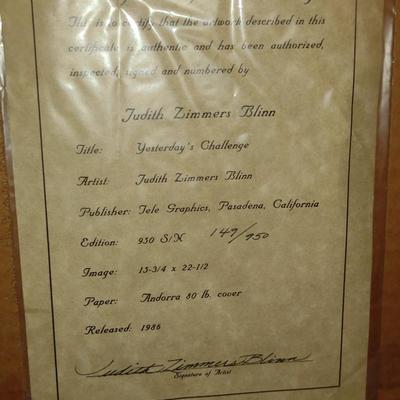 This is to certify that the artwork described in this
certificate is authentic and has been authorized,
inspected, signed and numbered by
Judith Zimmers Blinn
Title: Yesterday's Challenge
Artist: Judith Zimmers Blinn
Publisher: Tele Graphics, Pasadena, California
Edition: 950 S/N 149/950
Image: 15-3/4 x 22-1/2
Paper: Andorra 80 lb. cover
Released: 1986
Judith Zimmers Blinn
Signature of Artist